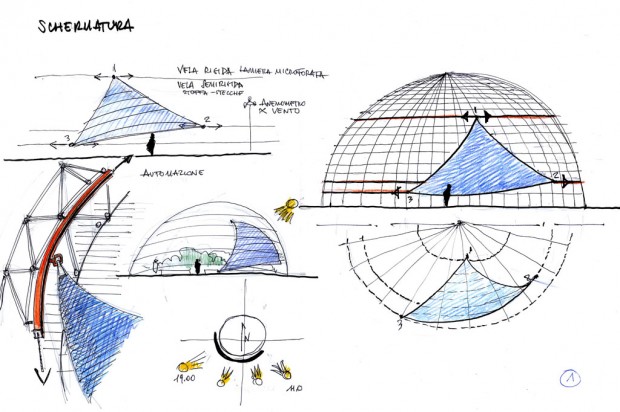 SCHERMATURA
1
VELA RIGIDA LAMIERA MICROFORATA
VELA SEMIRIGIDA
STOFFA-STECCHE
ANEMOMETRO
X VENTO
2
3
AUTOMAZIONE
1
2
3
1
2
3
N
19.00
1